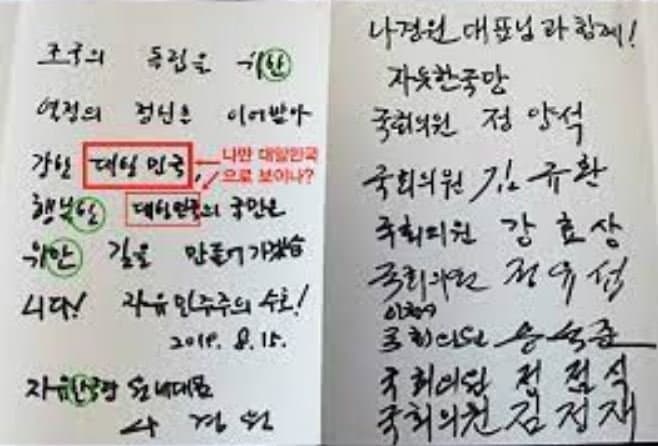 조국의 독립을 위한
열정의 정신을 이어받아
강한 대일민국,
나만 대일민국
으로 보이나?
행복한 대일민국의 국민을
위한 길을 만들어가겠습
니다! 자유민주주의 수호!
2019. 8. 15.
자유한국당 원내대표
나경원
나경원 대표님과 함께!
자유한국당
국회의원 정양석
국회의원 김규환
국회의원 강효상
국회의원 정유섭
국회의원 송석준
국회의원 정점식
국회의원 김정재